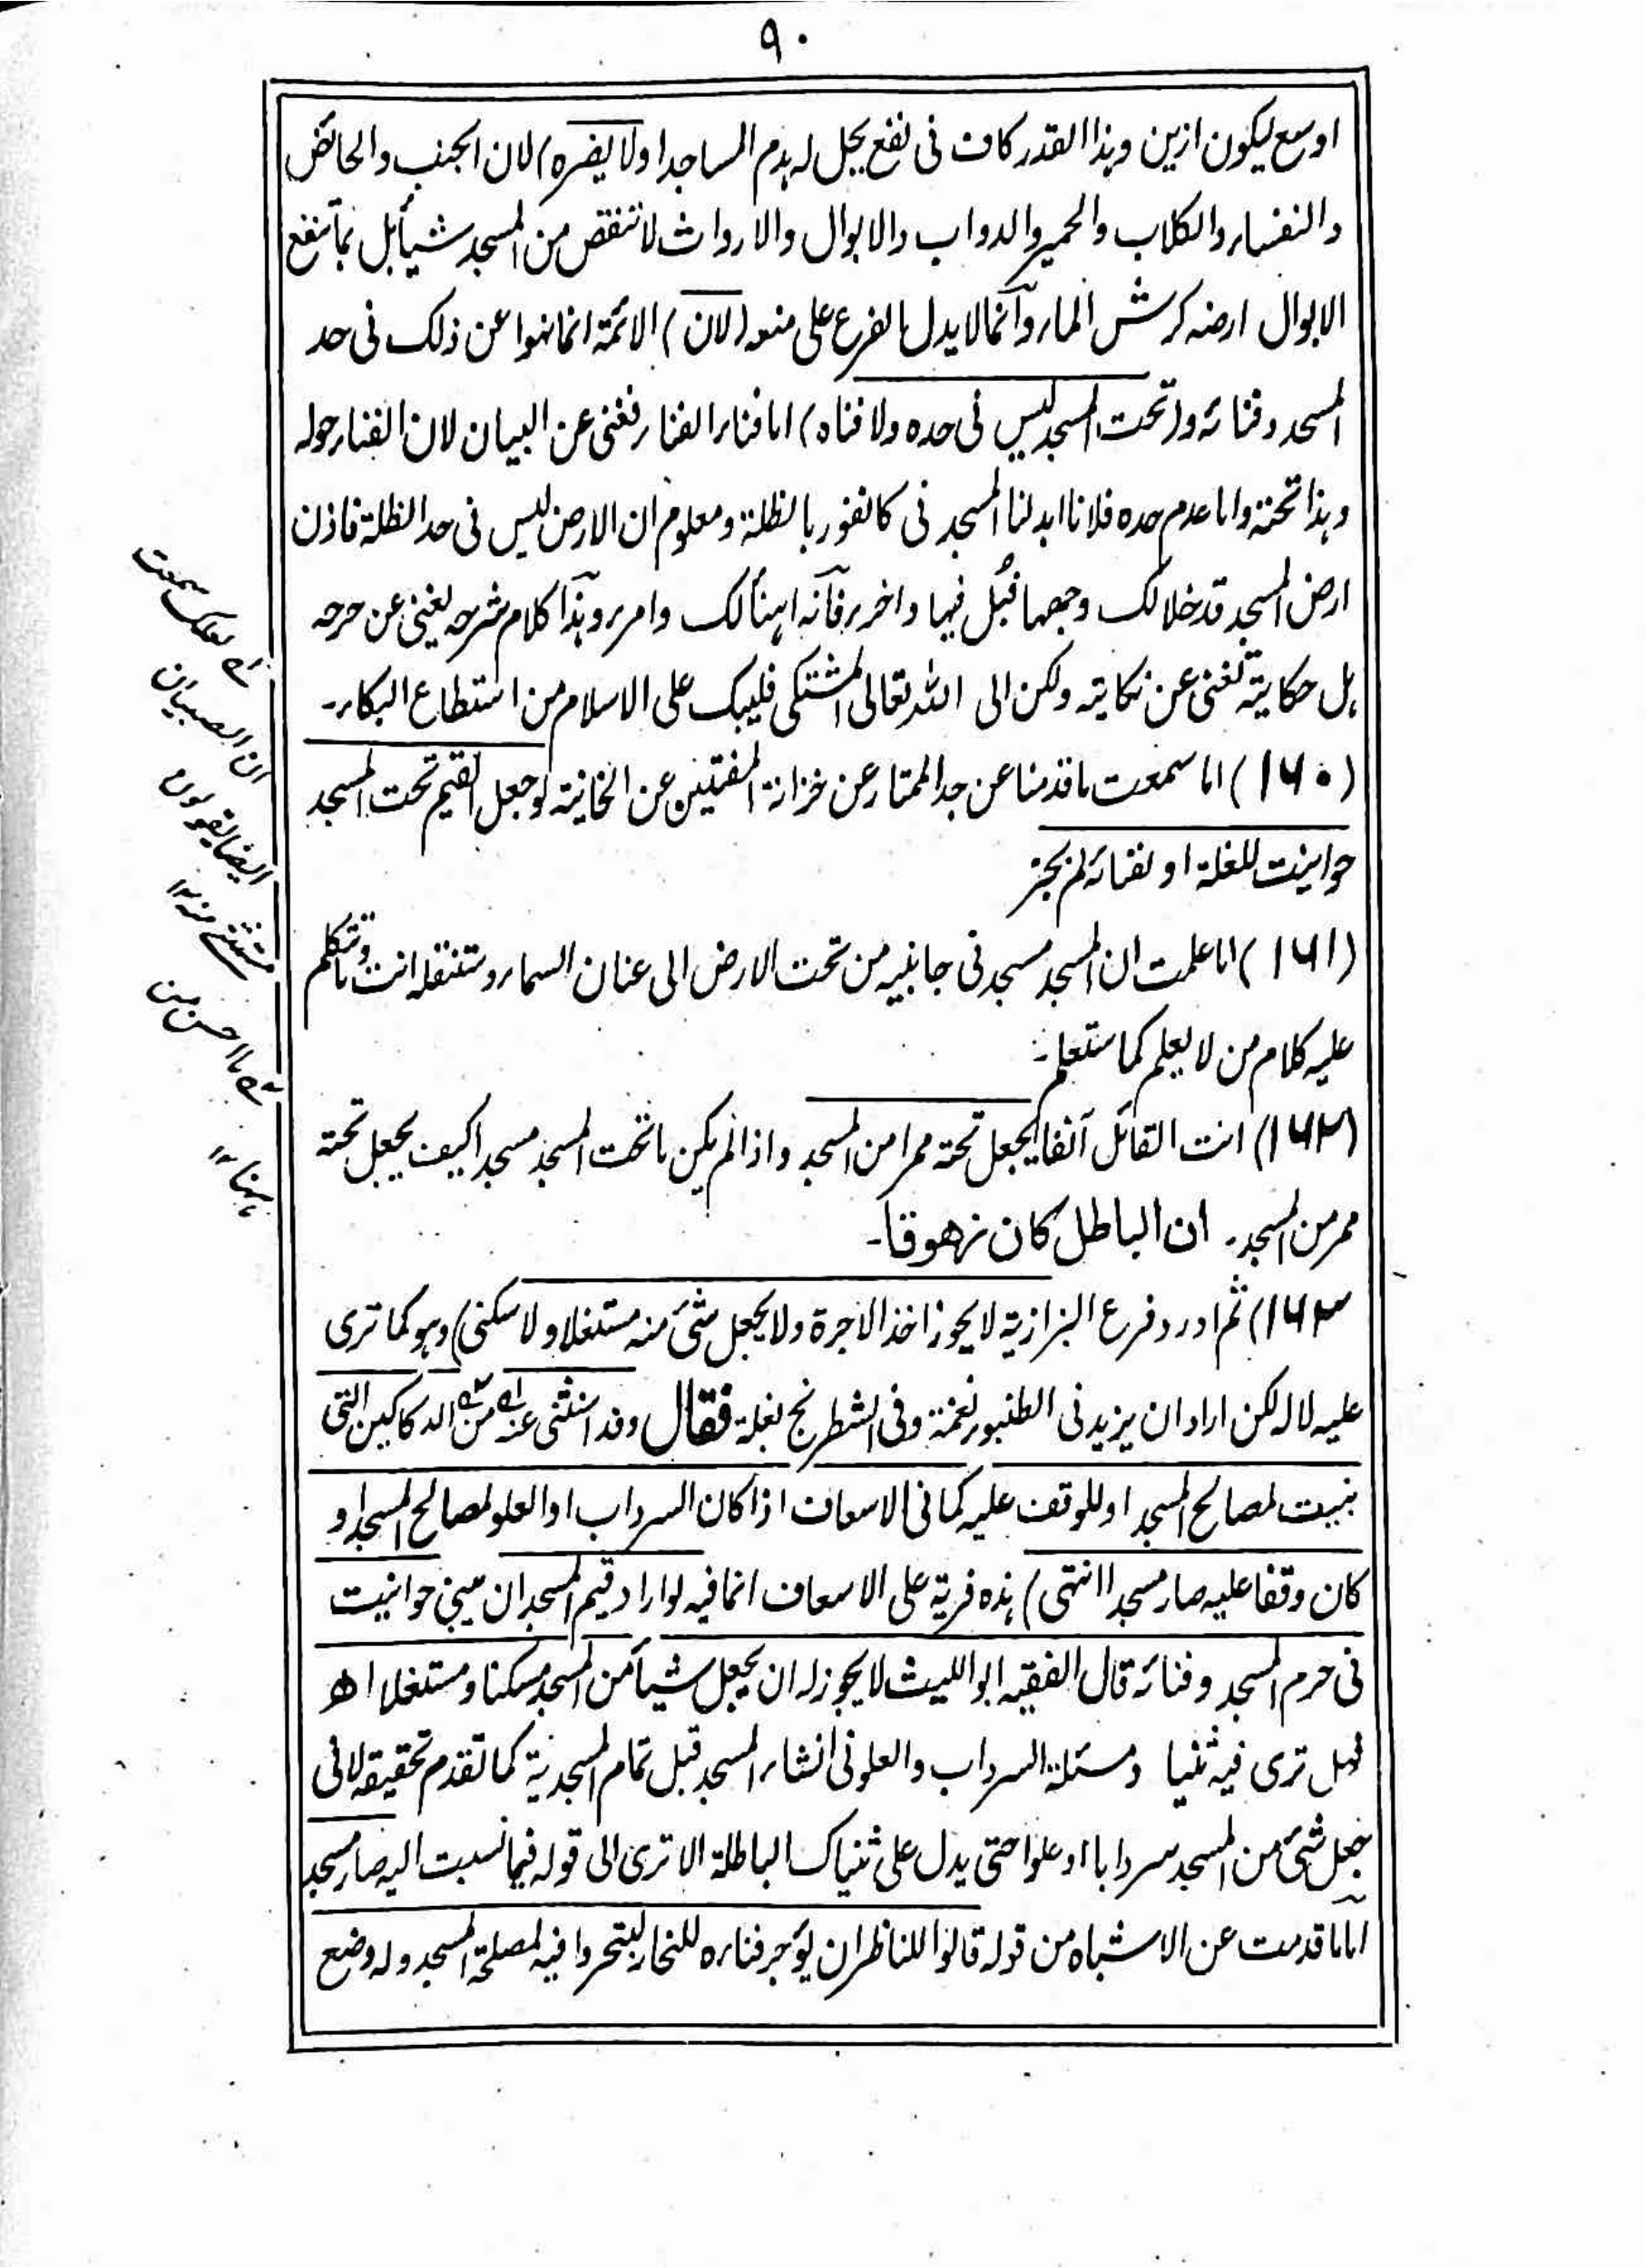 ٩٠
اوسع ليكون ازين وہذا القدر كاف فى نفع يحل لہ ہدم المساجد اولا يضره) لان الجنب والحائض
والنفساء والكلاب والحمير والدواب والابوال والارواث لا تنقص من المسجد شيأ بل ربما تنفع
الابوال ارضہ كرش الماء وانما لا يدل الفرع على منعہ (لان) الائمة انما نہوا عن ذلك فى حد
المسجد وفنائہ و(تحت المسجد ليس فى حده ولا فناه) اما فناء الفناء فغنى عن البيان لان الفناء حولہ
وہذا تحتہ واما عدم حده فلانا ابدلنا المسجد فى كانفور بالظلة ومعلوم ان الارض ليس فى حد الظلة فاذن
ارض المسجد قد خلا لك وجہہا فبُل فيہا واخرء فانہ اہنأ لك وامرء وہذا كلام شرحہ يغنى عن جرحہ
بل حكايتہ تغنى عن نكايتہ ولكن الى اللہ تعالى المشتكى فليبك على الاسلام من استطاع البكاء۔
(١٦٠) اما سمعت ما قدمنا عن جد الممتار عن خزانة المفتين عن الخانية لو جعل القيم تحت المسجد
حوانيت للغلة او لفنائہ لم يجز
(١٦١) اما علمت ان المسجد مسجد فى جانبيہ من تحت الارض الى عنان السماء وستنقلہ انت وتتكلم
عليہ كلام من لا يعلم كما ستعلم۔
(١٦٢) انت القائل آنفا يجعل تحتہ ممرا من المسجد واذا لم يكن ما تحت المسجد مسجدا كيف يجعل تحتہ
ممر من المسجد۔ ان الباطل كان زهوقا۔
١٦٣) ثم اورد فرع البزازية لا يجوز اخذ الاجرة ولا يجعل شئ منہ مستغلا ولا سكنى) وہو كما ترى
عليہ لا لہ لكن اراد ان يزيد فى الطنبور نغمة وفى الشطرنج بغلة فقال وقد استثنى عنہ من الدكاكين التى
بنيت لمصالح المسجد او للوقف عليہ كما فى الاسعاف اذا كان السرداب او العلو لمصالح المسجد او
كان وقفا عليہ صار مسجدا انتہى) ہذه فرية على الاسعاف انما فيہ لو اراد قيم المسجد ان يبنى حوانيت
فى حرم المسجد وفنائہ قال الفقيہ ابو الليث لا يجوز لہ ان يجعل شيأ من المسجد مسكنا ومستغلا اھ
فہل ترى فيہ ثنيا ومسئلة السرداب والعلو فى انشاء المسجد قبل تمام المسجدية كما تقدم تحقيقہ لا فى
جعل شئ من المسجد سردابا او علوا حتى يدل على ثنياك الباطلة الا ترى الى قولہ فيما نسبت اليہ صار مسجد
اما ما قدمت عن الاشباه من قولہ قالوا للناظر ان يؤجر فناءه للتجار ليتجروا فيہ لمصلحة المسجد ولہ وضع
سمعت
ان الصبيان
ايضا يقولون
مستثنى منہ ١٢
ما احسن من
ہہنا ١٢